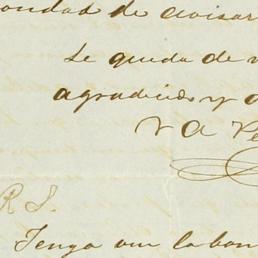 ondad de avisar
Le queda de v
agradicido y a
V A Pe
R S.
Tengo un la bon